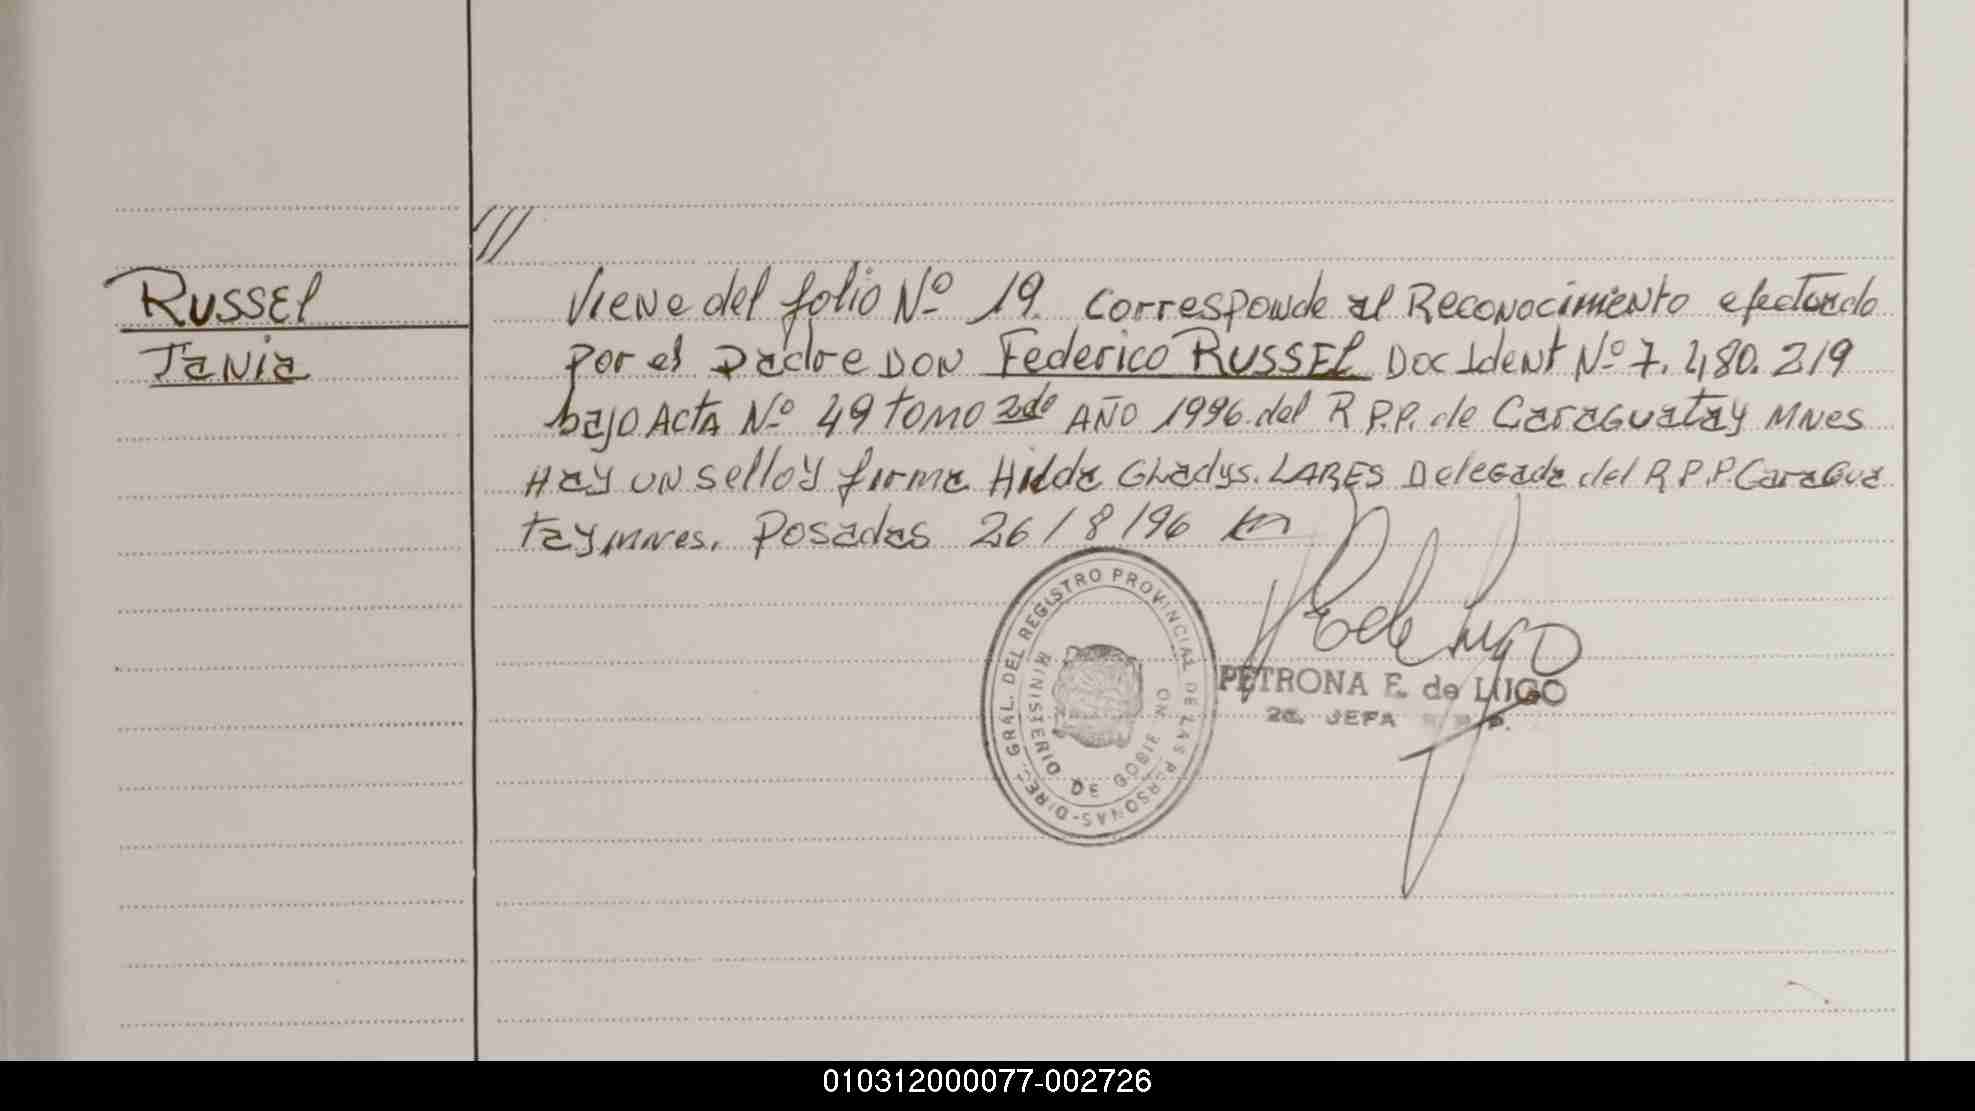 ///
RUSSEl
Tania
Viene del folio Nº 19. Corresponde al Reconocimiento efectuado
por el Padre DON Federico RUSSEl Doc Ident Nº 7.480.219
bajo Acta Nº 49 tomo 2do AÑO 1996 del R P.P. de Caraguatay Mnes
Hay un sello y firma Hilda Gladys. LARES Delegada del R.P.P. Caragua
tay mnes. Posadas 26/8/96
DIREC. GRAL. DEL REGISTRO PROVINCIAL DE LAS PERSONAS
MINISTERIO DE GOBIERNO
PEdeLugo
PETRONA E. de LUGO
2a. JEFA
010312000077-002726